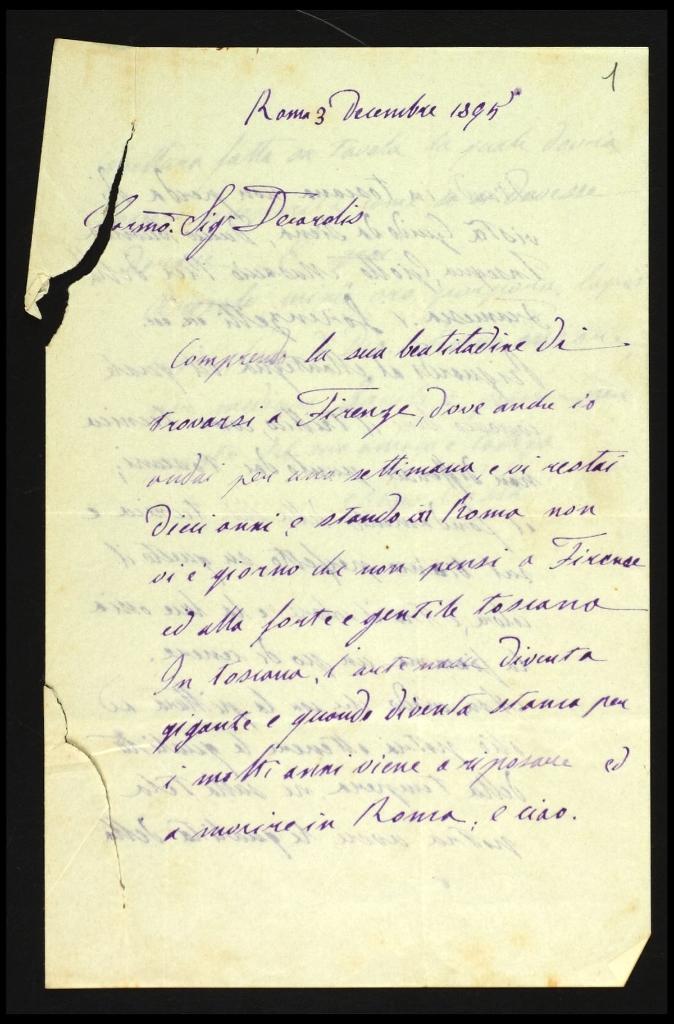 1
Roma 3 Decembre 1895
Carmo. Sigr Decarolis
Comprendo la sua beatitudine di
trovarsi a Firenze, dove anche io
andai per una settimana e vi restai
dieci anni, e stando a Roma non
vi è giorno che non pensi a Firenze
ed alla forte e gentile toscana
In toscana, l'arte nasce diventa
gigante e quando diventa stanca per
i molti anni viene a riposare ed
a morire in Roma, e ciao.